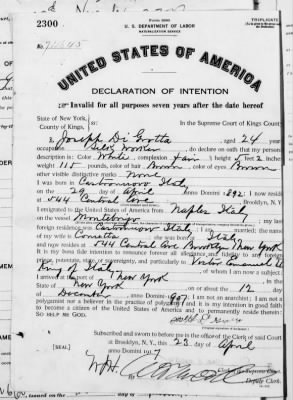 2300
Form 2203
TRIPLICATE
U. S. DEPARTMENT OF LABOR
NATURALIZATION SERVICE
No.
UNITED STATES OF AMERICA
DECLARATION OF INTENTION
Invalid for all purposes seven years after the date hereof
State of New York,
County of Kings, ss:
In the Supreme Court of Kings County.
I, Joseph Di Giotta aged 24 years,
occupation Silk Worker, do declare on oath that my personal
description is: Color White, complexion Fair, height 5 feet 2 inches,
weight 115 pounds, color of hair Brown, color of eyes Brown
other visible distinctive marks None
I was born in Italy
on the 29 day of April, anno Domini 1892; I now reside
at 544 Central Ave, Brooklyn, N.Y.
I emigrated to the United States of America from Naples Italy
on the vessel; my last
foreign residence was Italy
wife's name is; she was born in Italy
and now resides at 544 Central Ave Brooklyn New York
It is my bona fide intention to renounce forever all allegiance and fidelity to any foreign
prince, potentate, state, or sovereignty, and particularly to Victor Emanuel III
King of Italy, of whom I am now a subject;
I arrived at the port of New York, in the
State of New York, on or about the 12 day
of December, anno Domini 1907; I am not an anarchist; I am not a
polygamist nor a believer in the practice of polygamy; and it is my intention in good faith
to become a citizen of the United States of America and to permanently reside therein:
SO HELP ME GOD.
Subscribed and sworn to before me in the office of the Clerk of said Court
at Brooklyn, N.Y., this 23 day of April
[SEAL]
anno Domini 1917
Clerk of the Supreme Court.
Deputy Clerk.